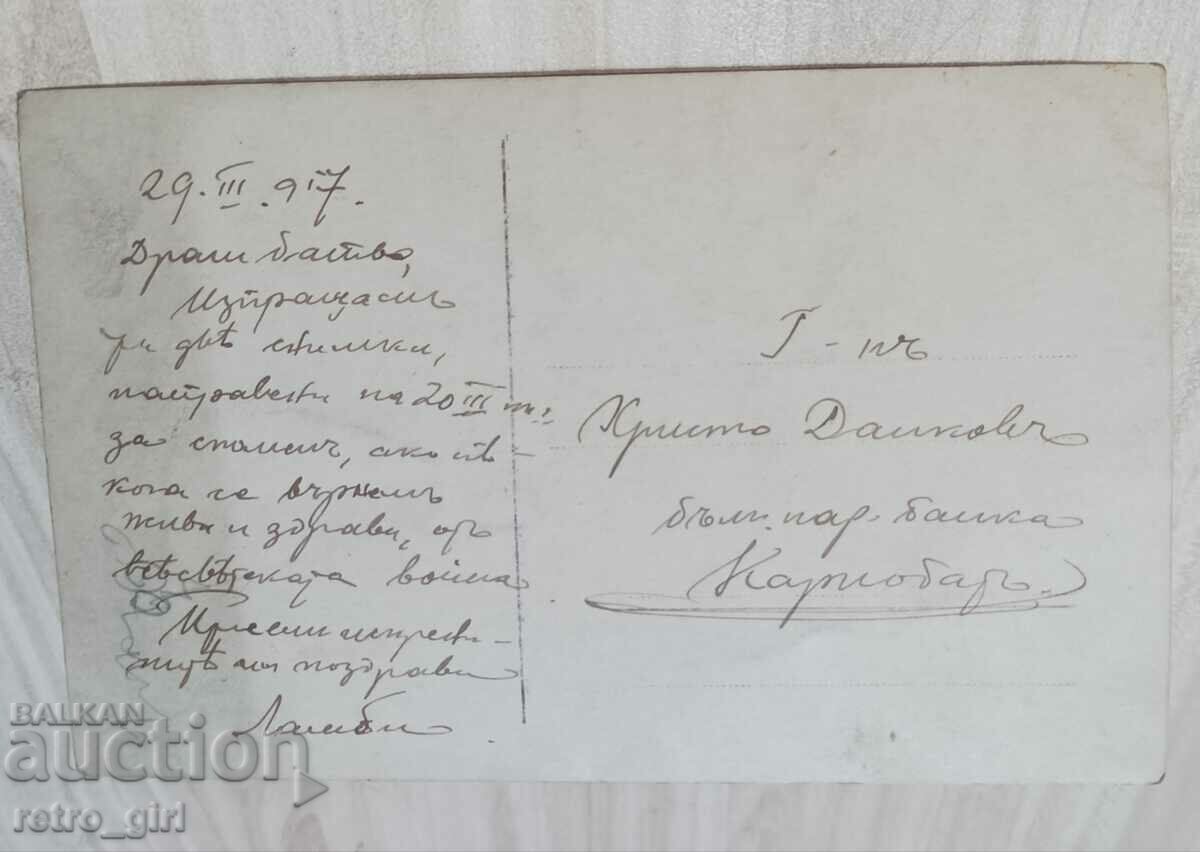 29.III.917.
Драги батьо,
Изпращамъ
ти двѣ снимки,
направени на 20 III т.г.
за споменъ, ако нѣ-
кога се върнемъ
живи и здрави, отъ
всѣсвѣтската война
Приеми искрени-
тѣ ми поздрави
Ламби
Г-нъ
Христо Данковъ
бълг. нар. банка
Карнобатъ.
BALKAN
auction
retro_girl